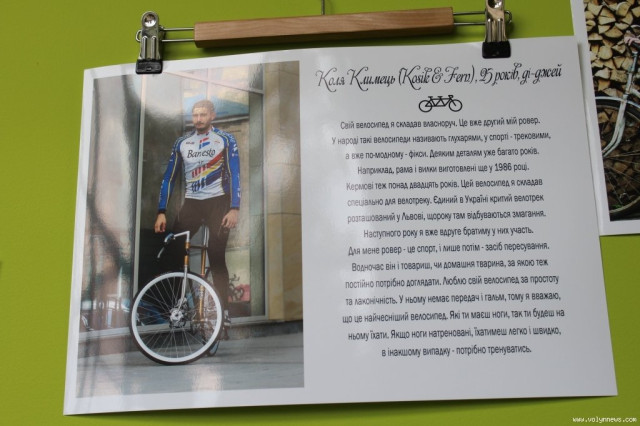 Коля Климець (Kosik & Fern), 25 років, ді-джей
Свій велосипед я складав власноруч. Це вже другий мій ровер.
У народі такі велосипеди називають глухарями, у спорті - трековими,
а вже по-модному - фікси. Деяким деталям уже багато років.
Наприклад, рама і вилки виготовлені ще у 1986 році.
Кермові теж понад двадцять років. Цей велосипед я складав
спеціально для велотреку. Єдиний в Україні критий велотрек
розташований у Львові, щороку там відбуваються змагання.
Наступного року я вже вдруге братиму у них участь.
Для мене ровер - це спорт, і лише потім - засіб пересування.
Водночас він і товариш, чи домашня тварина, за якою теж
постійно потрібно доглядати. Люблю свій велосипед за простоту
та лаконічність. У ньому немає передач і гальм, тому я вважаю,
що це найчесніший велосипед. Які ти маєш ноги, так ти будеш на
ньому їхати. Якщо ноги натреновані, їхатимеш легко і швидко,
в інакшому випадку - потрібно тренуватись.
Banesto
www.volynnews.com